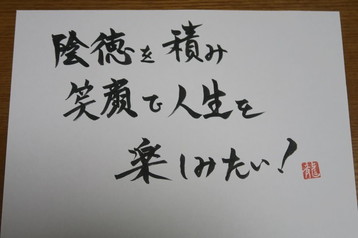 陰徳を積み
笑顔で人生を
楽しみたい!